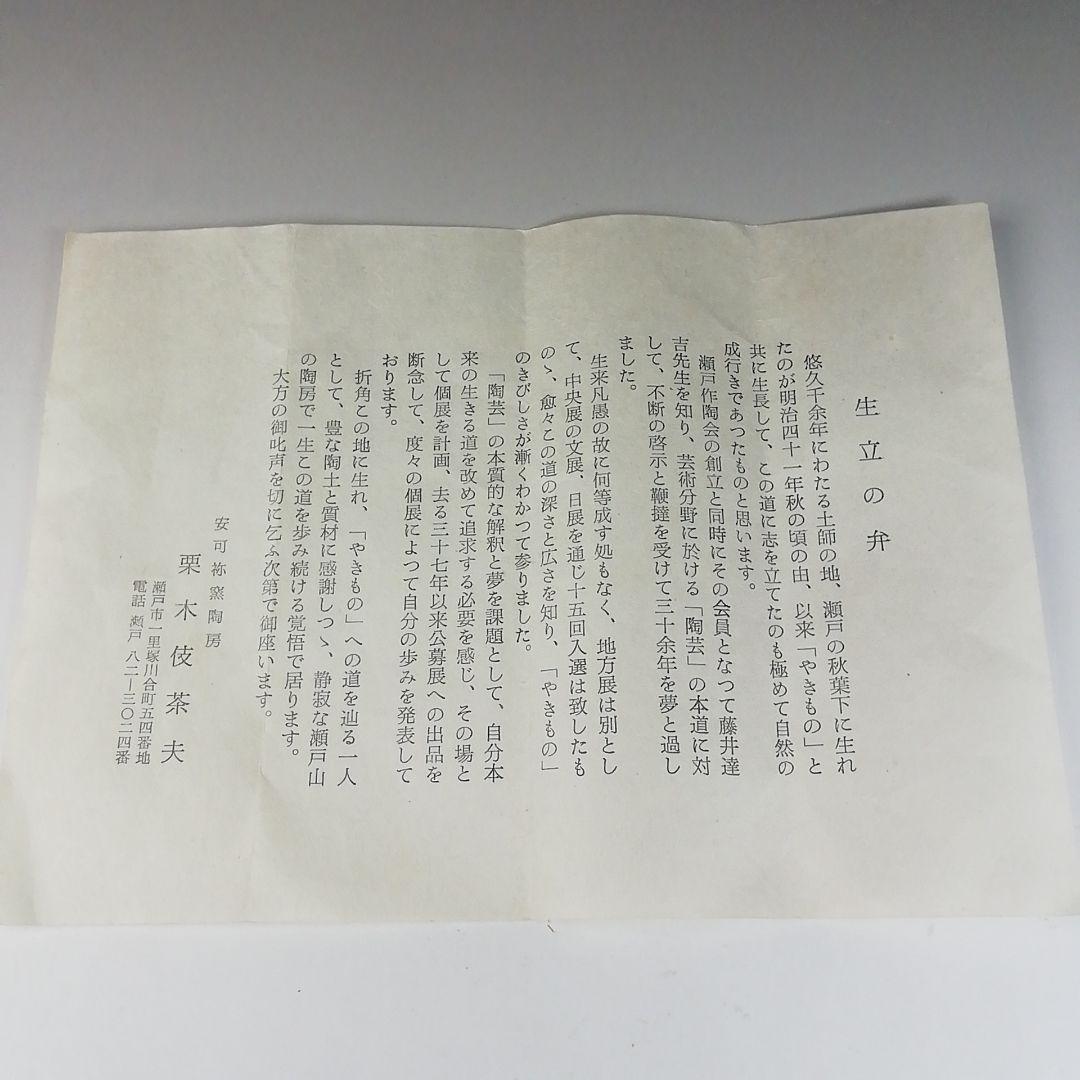 生立の弁
悠久千余年にわたる土師の地、瀬戸の秋葉下に生れ
たのが明治四十一年秋の頃の由、以来「やきもの」と
共に生長して、この道に志を立てたのも極めて自然の
成行きであつたものと思います。
瀬戸作陶会の創立と同時にその会員となつて藤井達
吉先生を知り、芸術分野に於ける「陶芸」の本道に対
して、不断の啓示と鞭撻を受けて三十余年を夢と過し
ました。
生来凡愚の故に何等成す処もなく、地方展は別とし
て、中央展の文展、日展を通じ十五回入選は致したも
のゝ、愈々この道の深さと広さを知り、「やきもの」
のきびしさが漸くわかつて参りました。
「陶芸」の本質的な解釈と夢を課題として、自分本
来の生きる道を改めて追求する必要を感じ、その場と
して個展を計画、去る三十七年以来公募展への出品を
断念して、度々の個展によつて自分の歩みを発表して
おります。
折角この地に生れ、「やきもの」への道を辿る一人
として、豊な陶土と質材に感謝しつゝ、静寂な瀬戸山
の陶房で一生この道を歩み続ける覚悟で居ります。
大方の御叱声を切に乞ふ次第で御座います。
安可祢窯陶房
栗木伎茶夫
瀬戸市一里塚川合町五四番地
電話 瀬戸 八二―三〇二四番